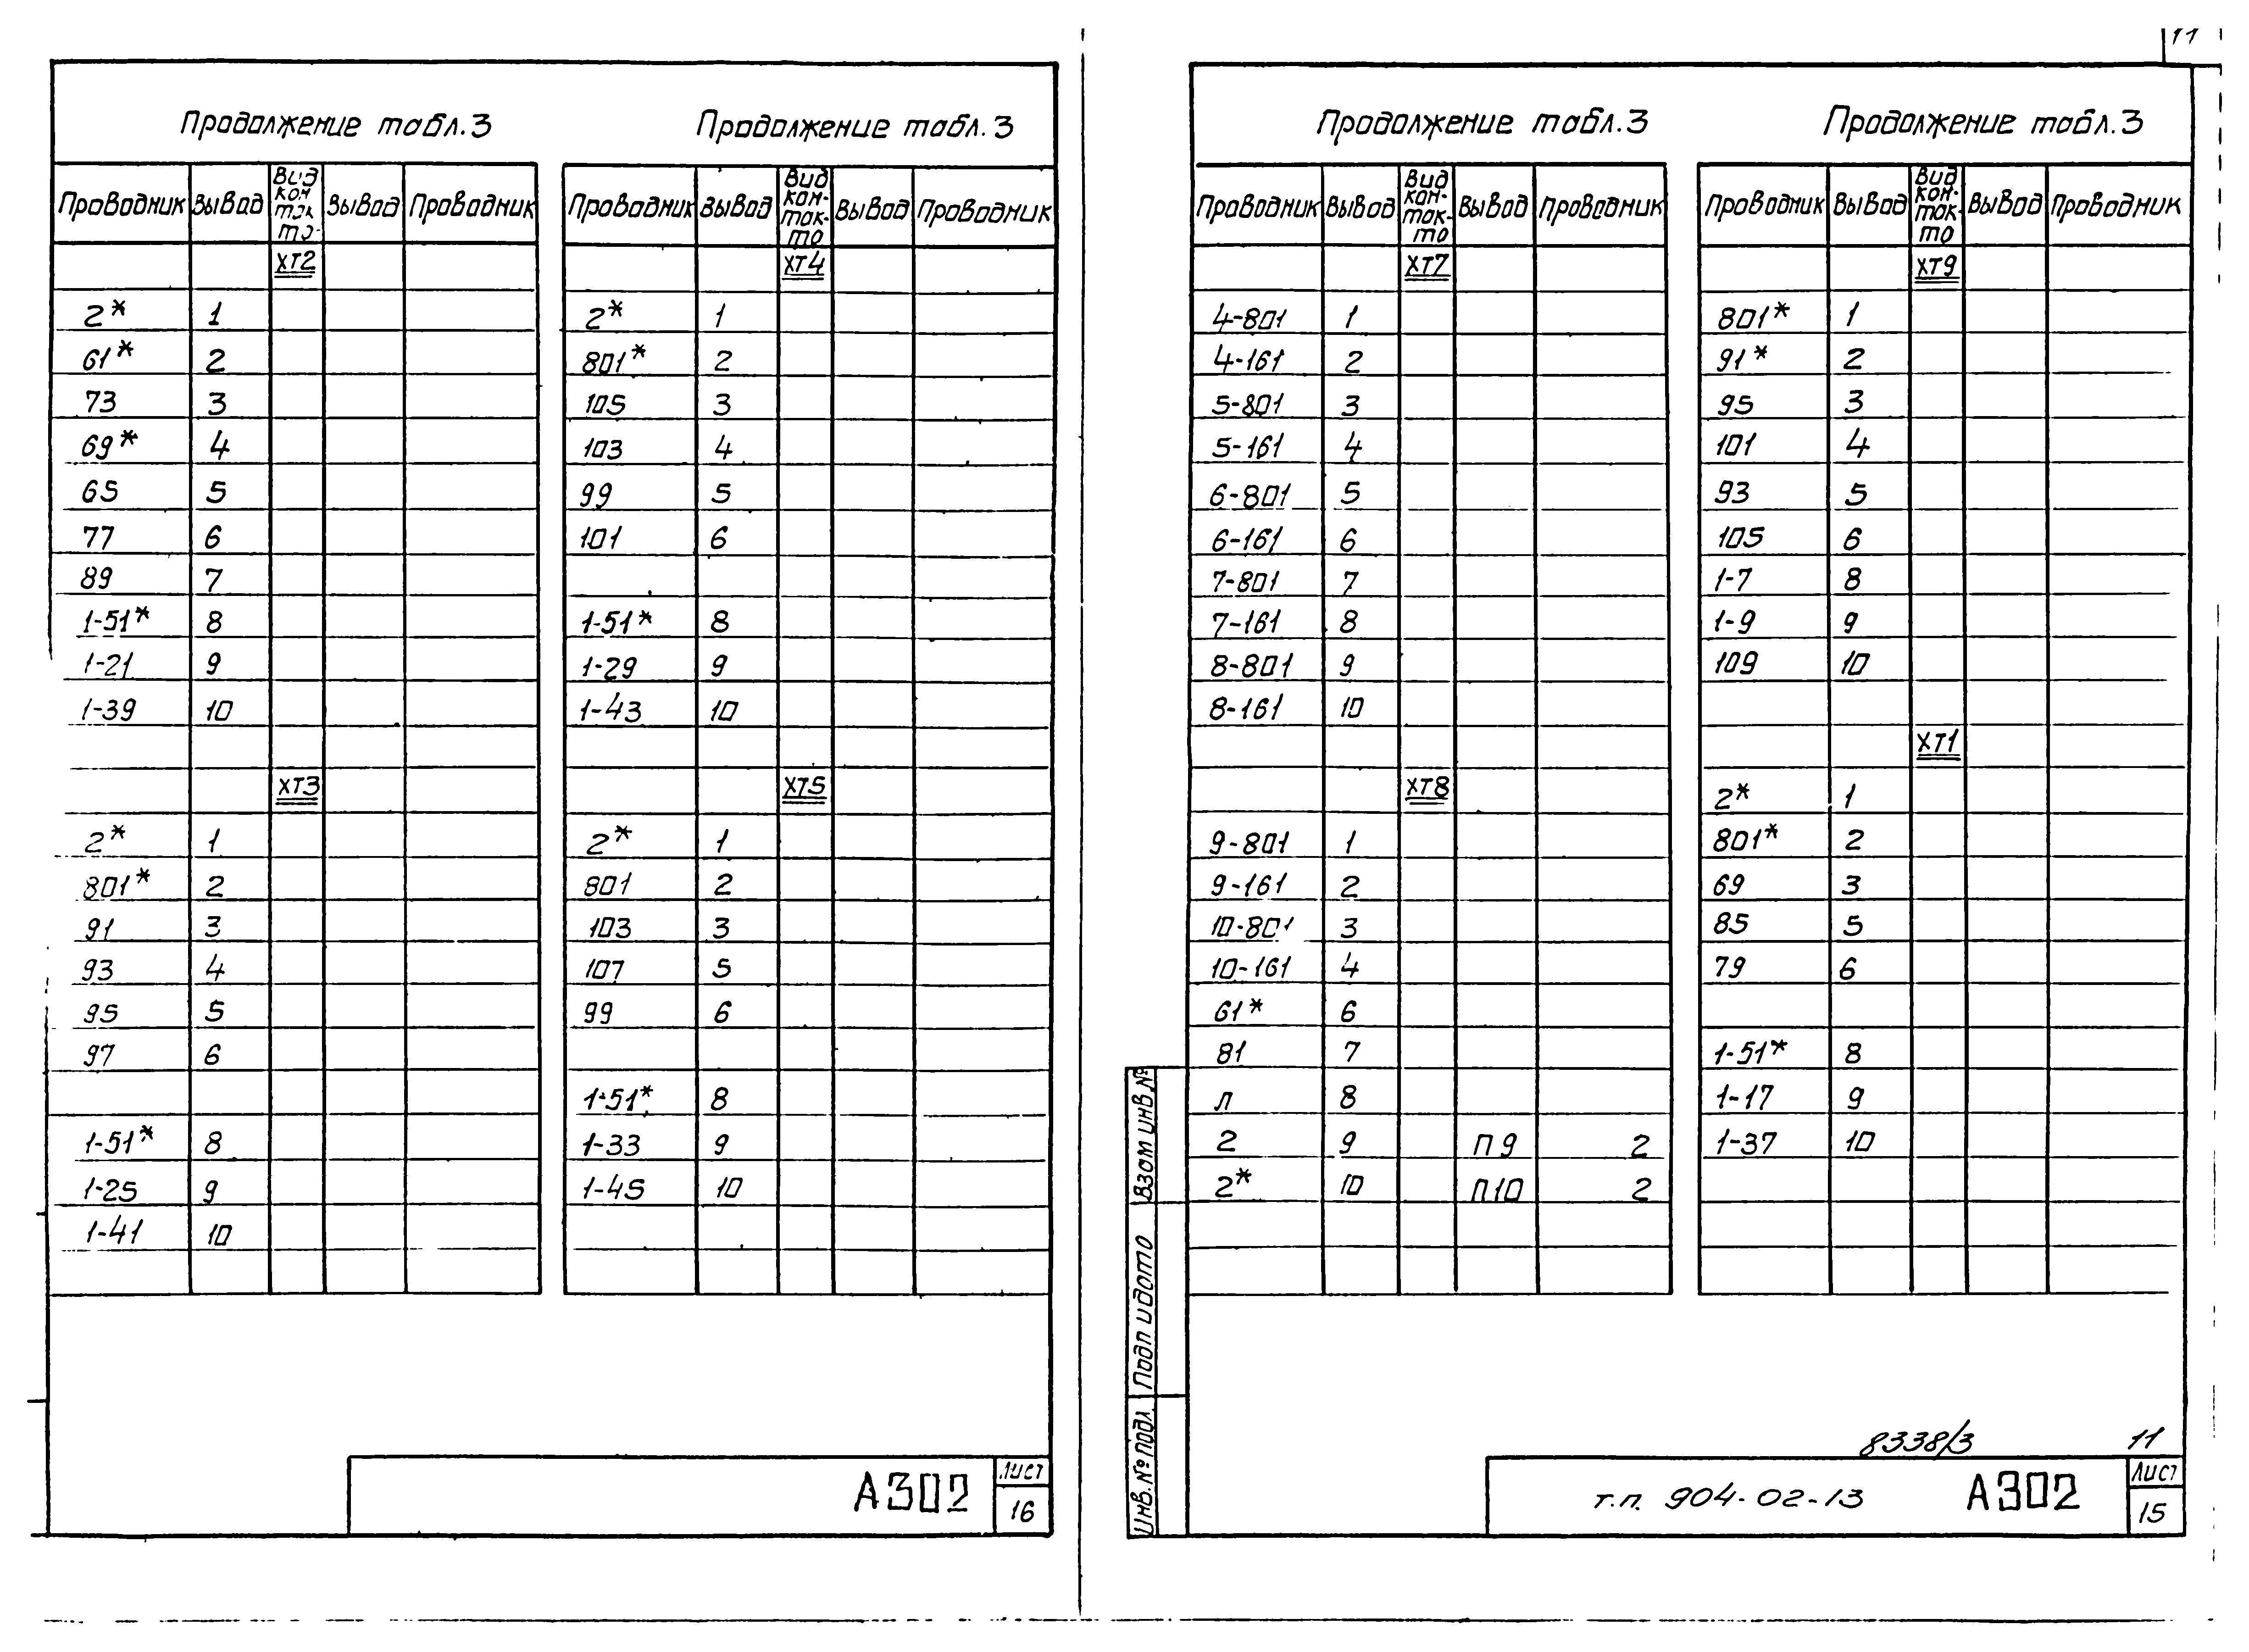 11
Продолжение табл.3
Проводник Вывод Вид кон такта Вывод Проводник
ХТ2
2* 1
61* 2
73 3
69* 4
65 5
77 6
89 7
1-51* 8
1-21 9
1-39 10
ХТ3
2* 1
801* 2
91 3
93 4
95 5
97 6
1-51* 8
1-25 9
1-41 10
Продолжение табл.3
Проводник Вывод Вид кон-так-та Вывод Проводник
ХТ4
2* 1
801* 2
105 3
103 4
99 5
101 6
1-51* 8
1-29 9
1-43 10
ХТ5
2* 1
801 2
103 3
107 5
99 6
1-51* 8
1-33 9
1-45 10
А302
Лист
16
Продолжение табл.3
Проводник Вывод Вид кон-так-та Вывод Проводник
ХТ7
4-801 1
4-161 2
5-801 3
5-161 4
6-801 5
6-161 6
7-801 7
7-161 8
8-801 9
8-161 10
ХТ8
9-801 1
9-161 2
10-801 3
10-161 4
61* 6
81 7
Л 8
2 9 П9 2
2* 10 П10 2
Продолжение табл.3
Проводник Вывод Вид кон-так-та Вывод Проводник
ХТ9
801* 1
91* 2
95 3
101 4
93 5
105 6
1-7 8
1-9 9
109 10
ХТ1
2* 1
801* 2
69 3
85 5
79 6
1-51* 8
1-17 9
1-37 10
Взам инв №
Подп и дата
Инв. № подл.
8338/3 11
т.п. 904-02-13 А302
Лист
15